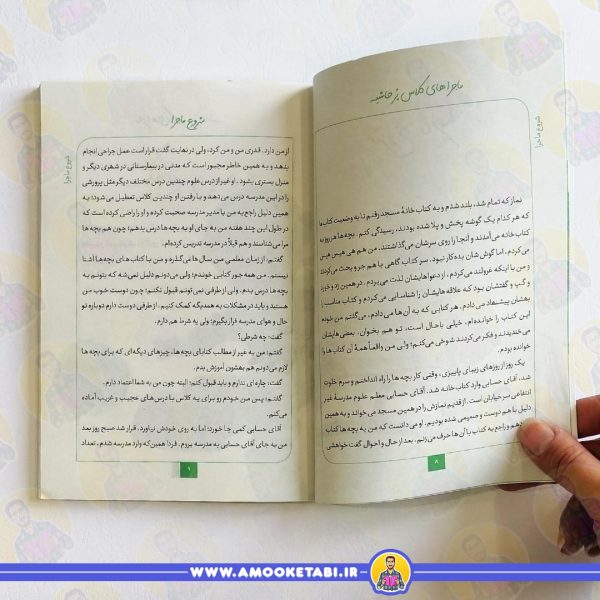 ماجراهای کلاس پرحاشیه
شروع ماجرا
نماز که تمام شد، بلند شدم و به کتاب‌خانهٔ مسجد رفتم تا به وضعیت کتاب‌ها
که هر کدام یک گوشه پخش و پلا شده بودند، رسیدگی کنم. بچه‌ها هر روز به
کتاب‌خانه می‌آمدند و آنجا را روی سرشان می‌گذاشتند. من هم هی هیس هیس
می‌کردم، اما گوش‌شان بدهکار نبود. سر کتاب گاهی با هم جر و بحث می‌کردند
و من با اینکه غرولند می‌کردم، از دعواهایشان لذت می‌بردم. در همین زد و خورد
و گپ و گفتشان بود که علاقه‌هایشان را شناسایی می‌کردم و کتاب مناسب را
بهشان پیشنهاد می‌دادم. هر کتابی که به آن‌ها می‌دادم، می‌گفتم من خودم
این کتاب را خوانده‌ام. خیلی باحال است، تو هم بخوان. بعضی‌هایشان
می‌خندیدند و فکر می‌کردند شوخی می‌کنم؛ ولی من واقعاً همهٔ آن کتاب‌ها را
خوانده بودم.
یک روز از روزهای زیبای پاییزی، وقتی کار بچه‌ها را راه انداختم و سرم خلوت
شد، آقای حسابی وارد کتاب‌خانه شد. آقای حسابی معلم علوم مدرسهٔ غیر
انتفاعی سر خیابان است. از قدیم نمازش را در همین مسجد می‌خواند و به همین
دلیل با هم دوست و صمیمی شده بودیم. او می‌دانست که من به بچه‌ها کتاب
می‌دهم و راجع به کتاب با آن‌ها حرف می‌زنم. بعد از حال و احوال گفت خواهشی
۸
شروع ماجرا
شروع ماجرا
از من دارد. قدری من و من کرد، ولی در نهایت گفت قرار است عمل جراحی انجام
بدهد و به همین خاطر مجبور است که مدتی در بیمارستانی در شهری دیگر و
منزل بستری بشود. او غیر از درس علوم چندین درس مختلف دیگر مثل پرورشی
را در این مدرسه درس می‌دهد و با رفتن او چندین کلاس تعطیل می‌شود؛ به
همین دلیل راجع به من با مدیر مدرسه صحبت کرده و او را راضی کرده است که
در طول این چند هفته من به جای او به بچه‌ها درس بدهم؛ چون هم بچه‌ها
مرا می‌شناسند و هم قبلاً در مدرسه تدریس کرده‌ام.
گفتم: از زمان معلمی من سال‌ها می‌گذره و من با کتاب‌های بچه‌ها آشنا
نیستم. من همه جور کتابی خوندم؛ ولی می‌دونم دلیل نمی‌شه که بتونم به
بچه‌ها درس بدم. ولی از طرفی نمی‌تونم قبول نکنم؛ چون دوست خوب من
هستید و باید در مشکلات به همدیگه کمک کنیم. از طرفی دوست دارم دوباره تو
حال و هوای مدرسه قرار بگیرم؛ ولی یه شرط هم دارم.
گفت: چه شرطی؟
گفتم: من به غیر از مطالب کتابای بچه‌ها، چیزهای دیگه‌ای که برای بچه‌ها
لازم می‌دونم هم بهشون آموزش بدم.
گفت: چاره‌ای ندارم و باید قبول کنم؛ البته چون من به شما اعتماد دارم.
گفتم: پس من خودم رو برای یه کلاس با درس‌های عجیب و غریب آماده
می‌کنم.
آقای حسابی کمی جا خورد؛ اما به روی خودش نیاورد. قرار شد صبح روز بعد
من به جای آقای حسابی به مدرسه بروم. فردا همین‌که وارد مدرسه شدم، تعداد
۹
WWW.AMOOKETABI.IR